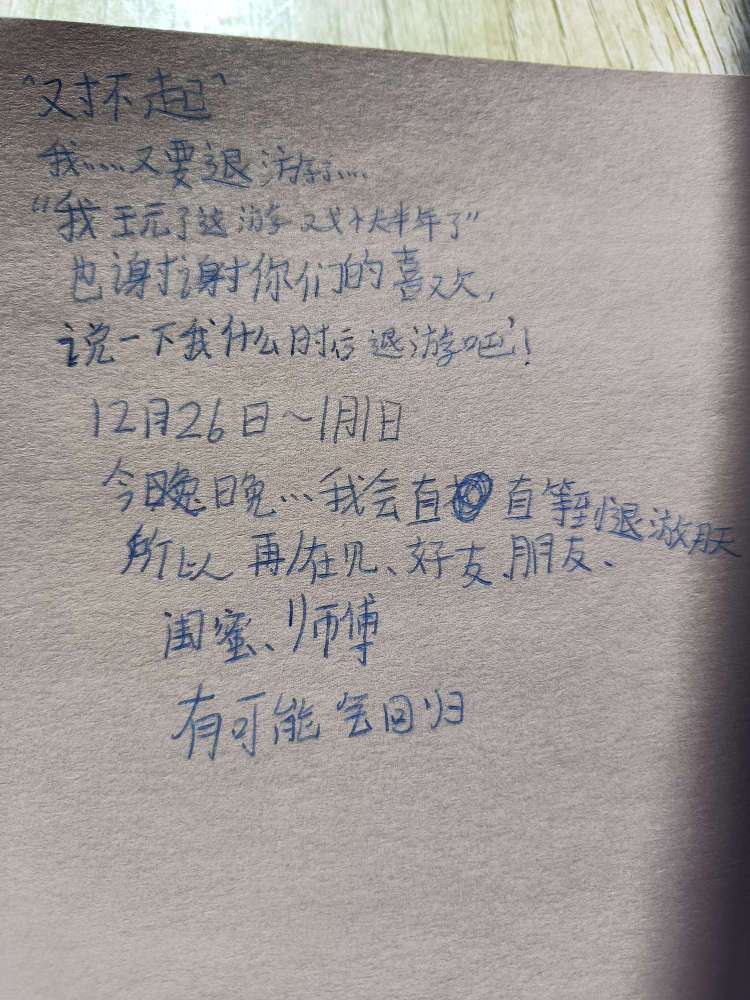 "对不起"
我……又要退游了……
"我玩了这游戏快半年了"
也谢谢你们的喜欢，
说一下我什么时后退游吧！
12月26日～1月1日
今晚日晚…我会直 直等到退游那天
所以人 再在见、好友、朋友、
闺蜜、师傅
有可能会回归